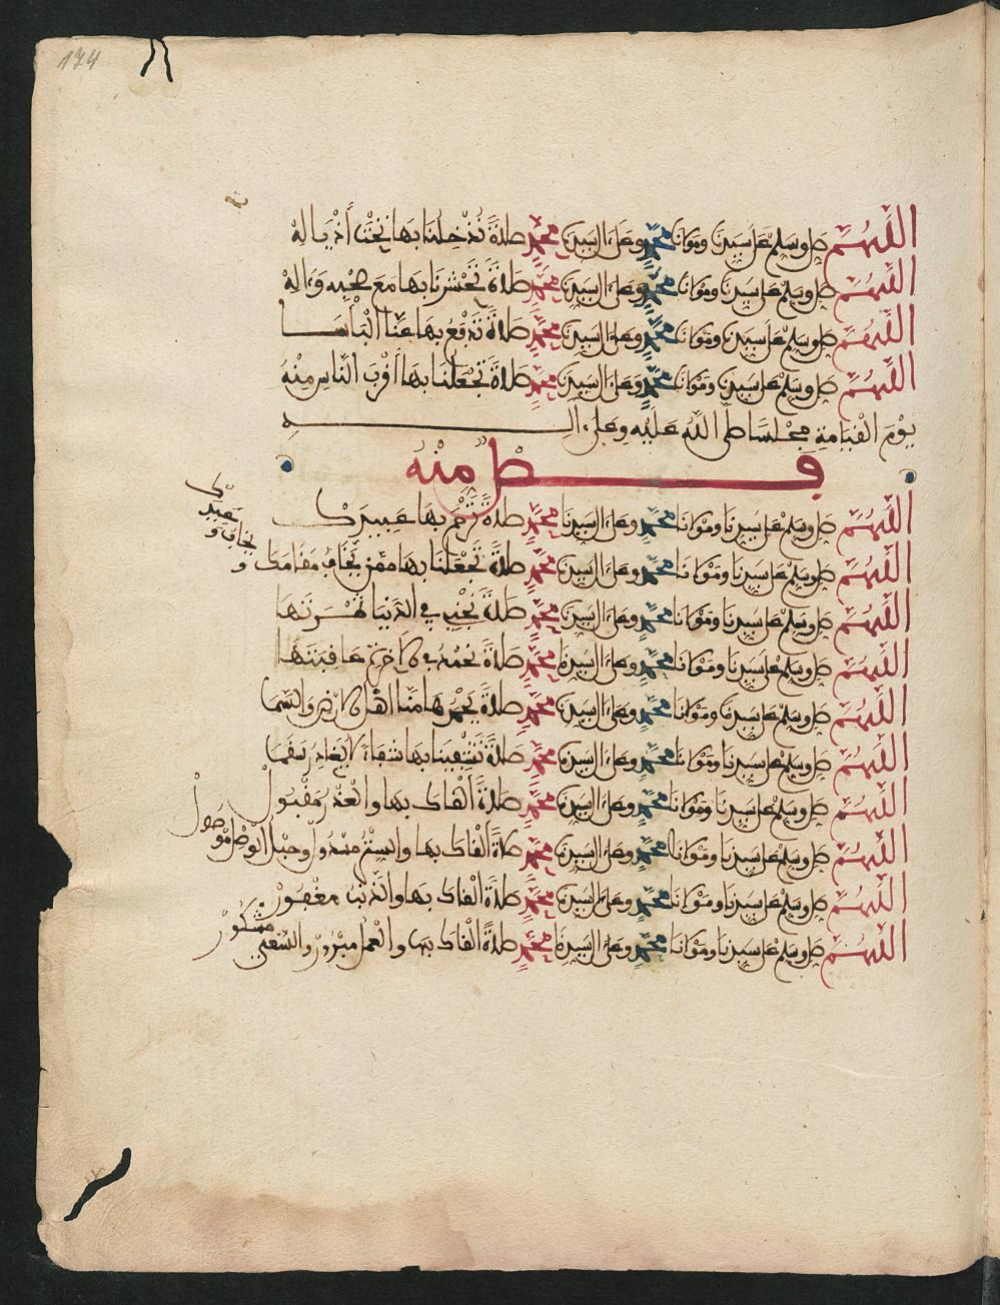 174
اللهم صل وسلم على سيدنا ومولانا محمد وعلى ءال سيدنا محمد صلاة تدخلنا بها تحت أذياله
اللهم صل وسلم على سيدنا ومولانا محمد وعلى ءال سيدنا محمد صلاة تحشرنا بها مع صحبه وءاله
اللهم صل وسلم على سيدنا ومولانا محمد وعلى ءال سيدنا محمد صلاة تدفع بها عنا البأسا
اللهم صل وسلم على سيدنا ومولانا محمد وعلى ءال سيدنا محمد صلاة تجعلنا بها أقرب الناس منه
يوم القيامة مجلسا صلى الله عليه وعلى ءاله
فصل منه
اللهم صل وسلم على سيدنا ومولانا محمد وعلى ءال سيدنا محمد صلاة ترحم بها عبيدك
اللهم صل وسلم على سيدنا ومولانا محمد وعلى ءال سيدنا محمد صلاة تجعلنا بها ممن يخاف مقامك و
يخاف وعيدك
اللهم صل وسلم على سيدنا ومولانا محمد وعلى ءال سيدنا محمد صلاة نجني في الدنيا ثمرتها
اللهم صل وسلم على سيدنا ومولانا محمد وعلى ءال سيدنا محمد صلاة نحمد في الاخرة عاقبتها
اللهم صل وسلم على سيدنا ومولانا محمد وعلى ءال سيدنا محمد صلاة اهل الارض والسما
اللهم صل وسلم على سيدنا ومولانا محمد وعلى ءال سيدنا محمد صلاة تشفينا بها شفاء لا يغادر سقما
اللهم صل وسلم على سيدنا ومولانا محمد وعلى ءال سيدنا محمد صلاة ألقاك بها والعذر مقبول
اللهم صل وسلم على سيدنا ومولانا محمد وعلى ءال سيدنا محمد صلاة ألقاك بها والستر مسدول وحبل الوصل موصول
اللهم صل وسلم على سيدنا ومولانا محمد وعلى ءال سيدنا محمد صلاة القاك بها والذنب مغفور
اللهم صل وسلم على سيدنا ومولانا محمد وعلى ءال سيدنا محمد صلاة القاك بها والعمل مبرور والسعي مشكور